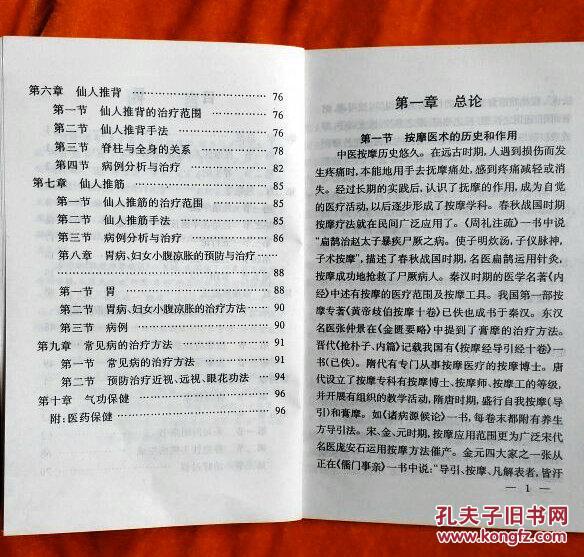 第六章 仙人推背 …………………… 76
第一节 仙人推背的治疗范围 ………… 76
第二节 仙人推背手法 ……………… 76
第三节 脊柱与全身的关系 ………… 78
第四节 病例分析与治疗 …………… 82
第七章 仙人推筋 …………………… 85
第一节 仙人推筋的治疗范围 ……… 85
第二节 仙人推筋手法 ……………… 85
第三节 病例分析与治疗 …………… 86
第八章 胃病、妇女小腹凉胀的预防与治疗……
…………………………………… 88
第一节 胃 …………………………… 88
第二节 胃病、妇女小腹凉胀的治疗方法 … 90
第三节 病例 ………………………… 90
第九章 常见病的治疗方法 ………… 91
第一节 常见病的治疗方法 ………… 91
第二节 预防治疗近视、远视、眼花功法 … 94
第十章 气功保健 …………………… 96
附:医药保健 ………………………… 96
第一章 总论
第一节 按摩医术的历史和作用
中医按摩历史悠久。在远古时期,人遇到损伤而发
生疼痛时,本能地用手去抚摩痛处,感到疼痛减轻或消
失。经过长期的实践后,认识了抚摩的作用,成为自觉
的医疗活动,以后逐步形成了按摩学科。春秋战国时期
按摩疗法就在民间广泛应用了。《周礼注疏》一书中说
“扁鹊治赵太子暴疾尸厥之病。使子明炊汤,子仪脉神,
子术按摩”,描述了春秋战国时期,名医扁鹊运用针灸、
按摩成功地抢救了尸厥病人。秦汉时期的医学名著《内
经》中述有按摩的医疗范围及按摩工具。我国第一部按
摩专著《黄帝歧伯按摩十卷》已佚也成书于秦汉。东汉
名医张仲景在《金匮要略》中提到了膏摩的治疗方法。
晋代《抢朴子、内篇》记载我国有《按摩经导引经十卷》一
书(已佚)。隋代有专门从事按摩医疗的按摩博士。唐
代设立了按摩专科有按摩博士、按摩师、按摩工的等级,
并开展有组织的教学活动,隋唐时期,盛行自我按摩(导
引)和膏摩。如《诸病源候论》一书,每卷末都附有养生
方导引法。宋、金、元时期,按摩应用范围更为广泛宋代
名医庞安石运用按摩方法催产。金元四大家之一张从
正在《儒门事亲》一书中说:“导引、按摩、凡解表者,皆汗
— 1 —
孔夫子旧书网